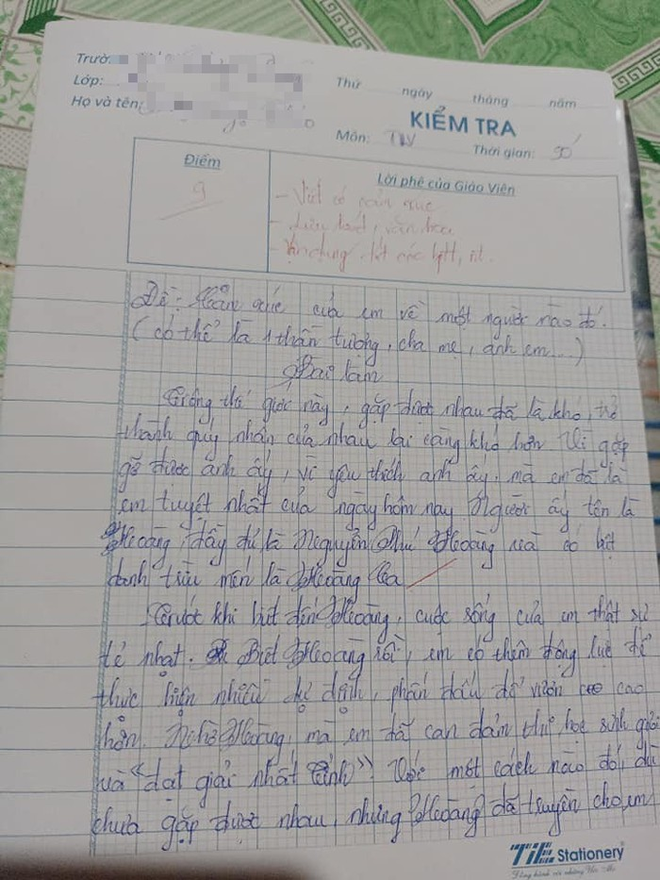 Trườ
Thứ ngày tháng năm
Lớp:
Họ và tên:
KIỂM TRA
Môn: TLV Thời gian: 90'
Điểm
Lời phê của Giáo Viên
9
- Viết có cảm xúc
- Vận dụng tốt các
Đề: Cảm xúc của em về một người nào đó.
(có thể là 1 thần tượng, cha mẹ, anh em...)
Bài làm
Trong thế giới này, gặp được nhau đã là khó, trở
thành quý nhân của nhau lại càng khó hơn. Vì gặp
gỡ được anh ấy, vì yêu thích anh ấy, mà em đã là
em tuyệt nhất của ngày hôm nay. Người ấy tên là
Hoàng, đầy đủ là Nguyễn Hoàng và có biệt
danh trìu mến là Hoàng
Trước khi biết đến Hoàng, cuộc sống của em thật sự
tẻ nhạt. Biết Hoàng rồi, em có thêm động lực để
thực hiện nhiều dự định, phấn đấu để vươn cao
hơn. Nhờ Hoàng, mà em đã can đảm thi học sinh giỏi
và "đạt giải nhất tỉnh". Với một cách nào đó, dù
chưa gặp được nhau, nhưng Hoàng đã truyền cho em
TiE Stationery